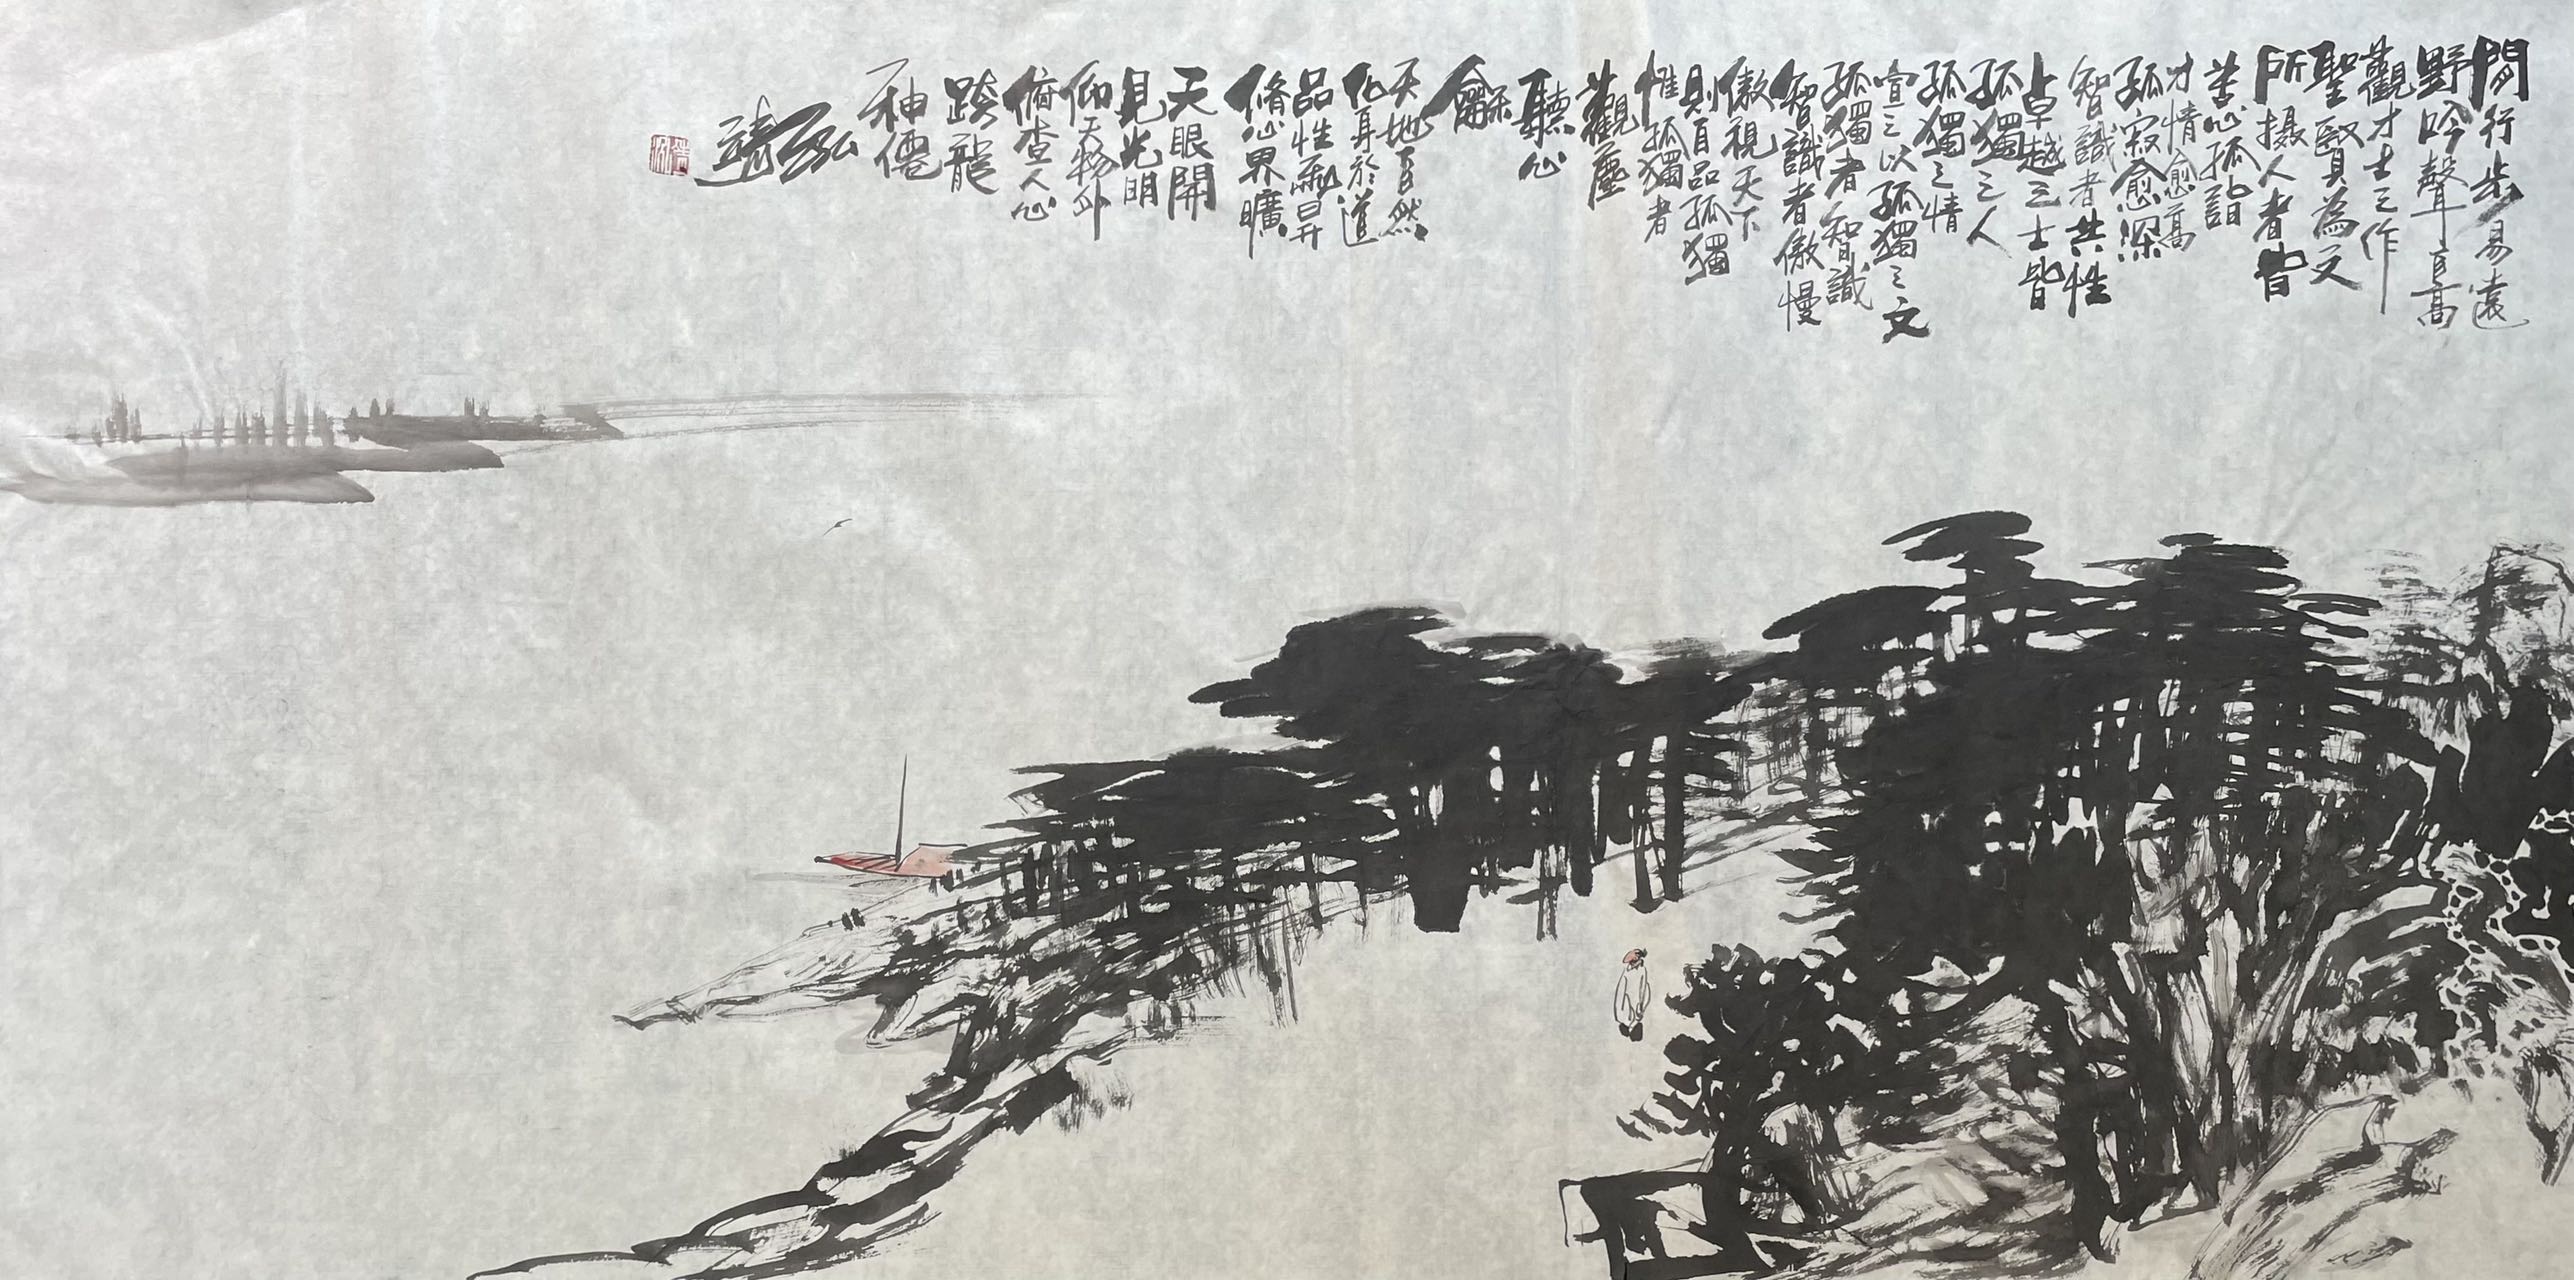 閒行步易遠
野吟聲自高
觀才士之作
聖賢為文
所摄人者皆
苦心孤詣
才情愈高
孤寂愈深
智識者共性
卓越之士皆
孤獨之人
孤獨之情
宣之以孤獨之文
孤獨者智識
智識者傲慢
傲視天下
則自品孤獨
惟孤獨者
觀塵
聽心
龢
天地自然
化身於道
品性氣昇
脩心界曠
天眼開
見光明
仰天物外
俯查人心
跨龍
神僊